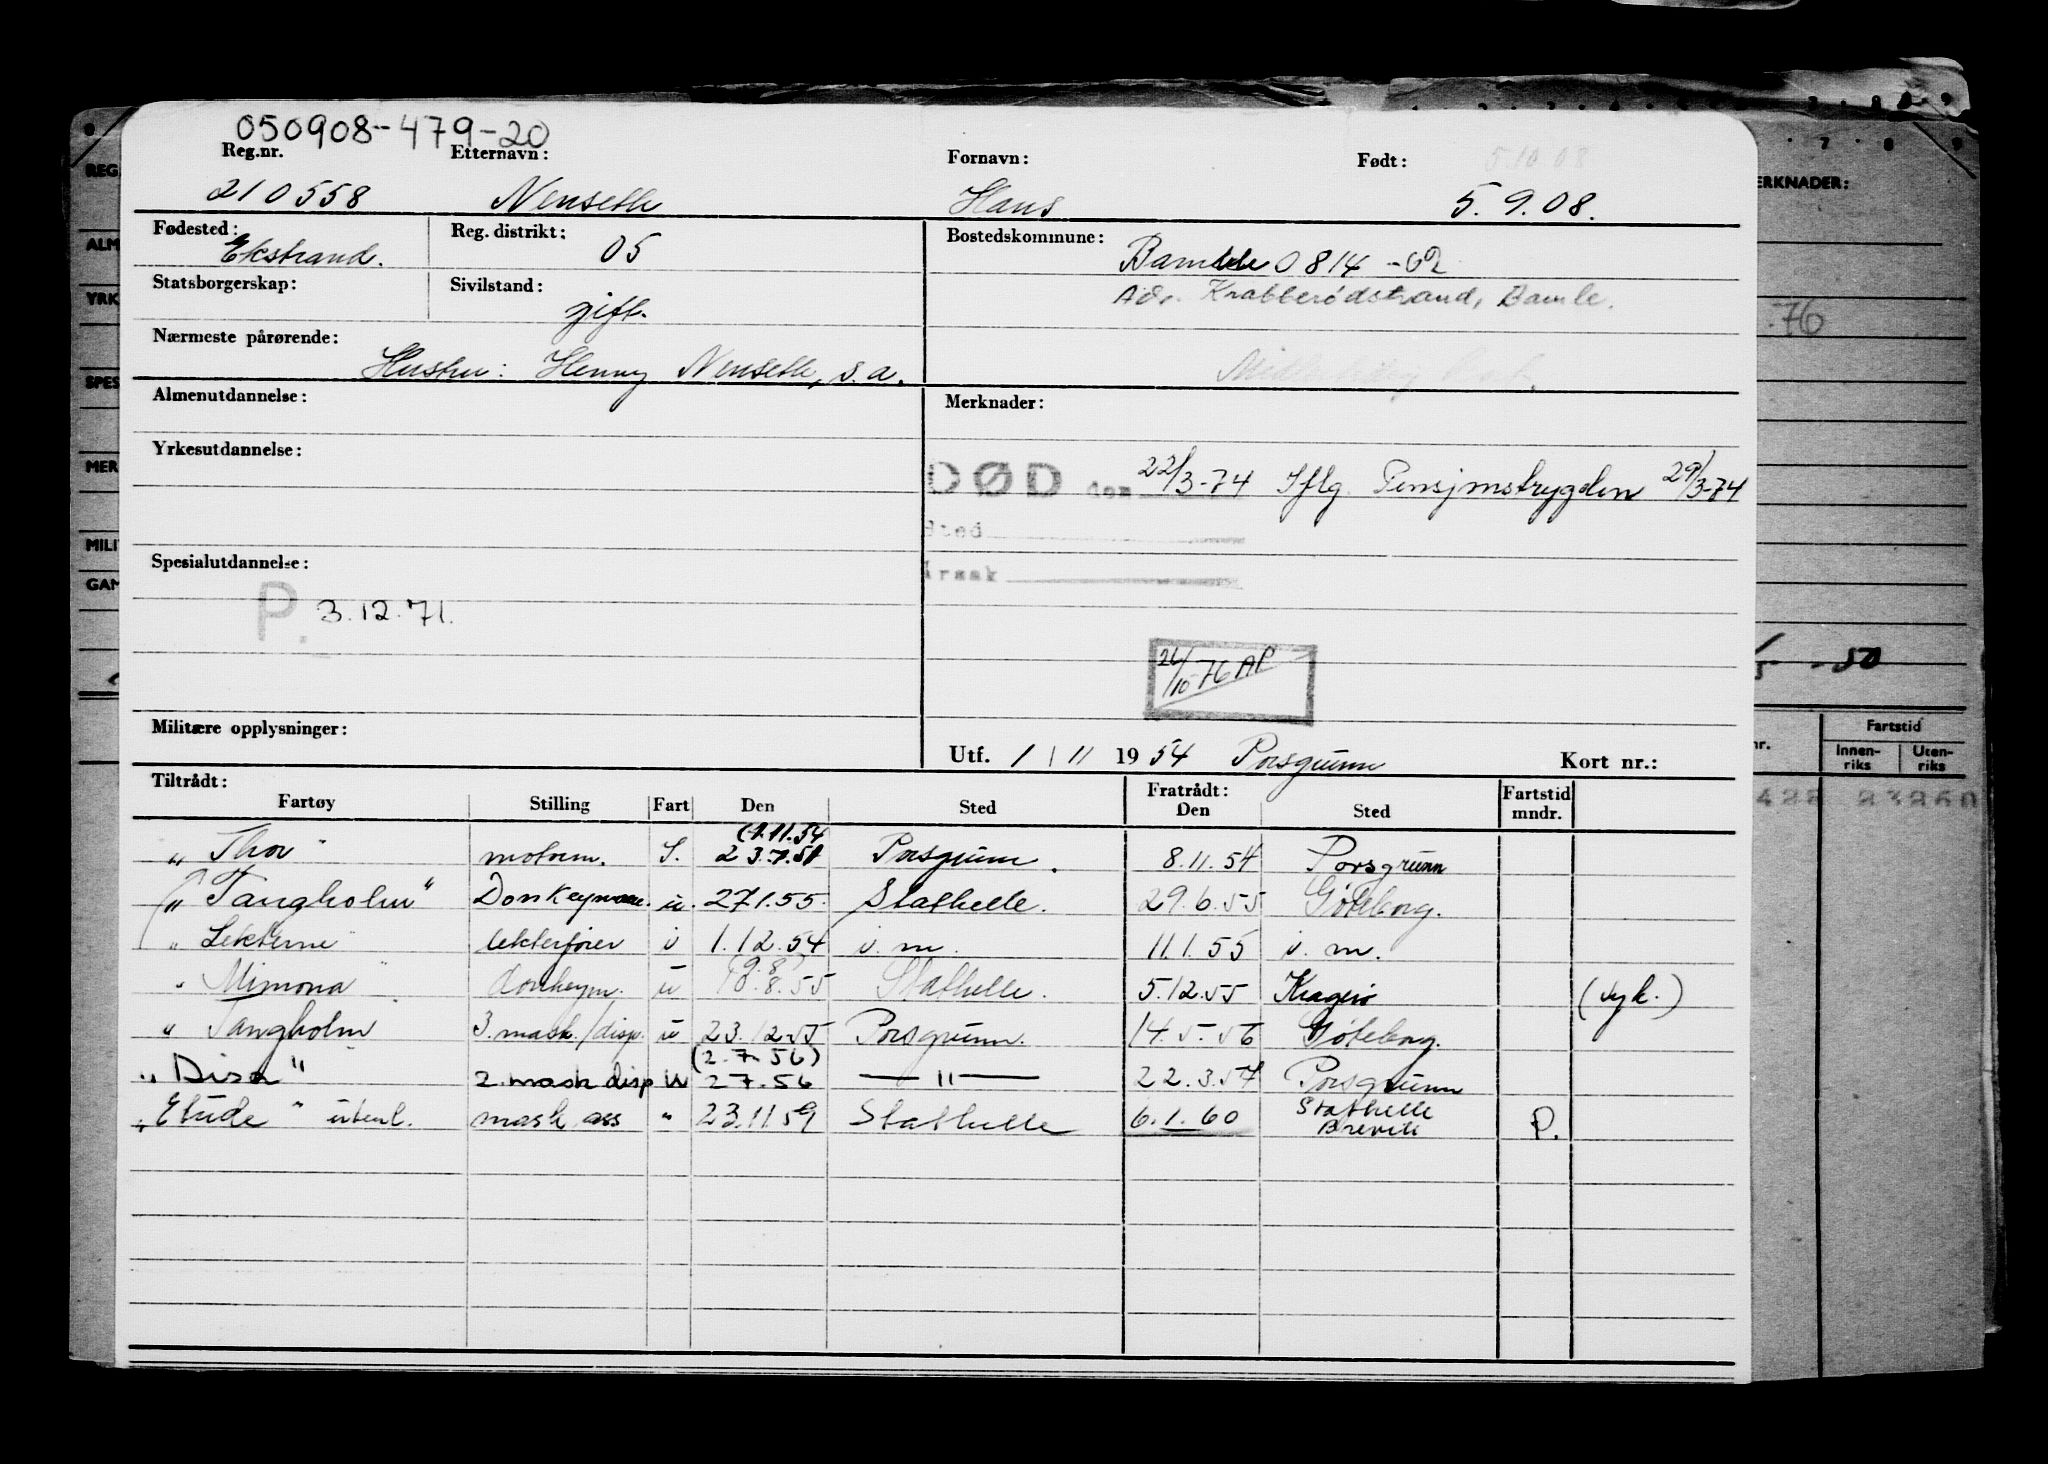 050908-479-20
Reg.nr. Etternavn: Fornavn: Født: 5.10.08
210558 Nenseth Hans 5.9.08.
Fødested: Reg. distrikt: 05 Bostedskommune:
Ekstrand. Bamble 0814-02
Statsborgerskap: Sivilstand: gift. Adr. Krabberødstrand, Bamle.
Nærmeste pårørende:
Hustru: Henny Nenseth, s.a.
Almenutdannelse: Merknader:
Yrkesutdannelse:
DØD den 22/3-74 Iflg. Pensjonstrygden 29/3-74
Sted
Årsak
Spesialutdannelse:
P. 3.12.71.
26/10 76 AP
Militære opplysninger:
Utf. 1/11 1954 Porsgrunn Kort nr.:
Tiltrådt: Fratrådt: Fartstid
Fartøy Stilling Fart Den Sted Den Sted mndr.
(1.11.54
"Thor" motorm. I. 23.7.51 Porsgrunn. 8.11.54 Porsgrunn
"Tangholm" Donkeyman. u. 27.1.55. Stathelle. 29.6.55 Göteborg.
"Lekterne" lekterfører i 1.12.54 i.m. 11.1.55 i.m.
(9.8)
"Mimona" donkeym. u 10.8.55 Stathelle. 5.12.55 Kragerø (syk.)
"Tangholm 3.mask./disp. u 23.12.55 Porsgrunn. 14.5.56 Göteborg.
(2.7.56)
"Disa" 2.mask disp U 27.56 —"— 22.3.57 Porsgrunn
"Etude" utenl. mask ass " 23.11.59 Stathelle 6.1.60 Stathelle P.
Brevik
REG.
ALM
YRK
SPES
MER
MILI
GAM
7 8 9
ERKNADER:
.76
-50
nr. Fartstid
Innen-riks Uten-riks
23260